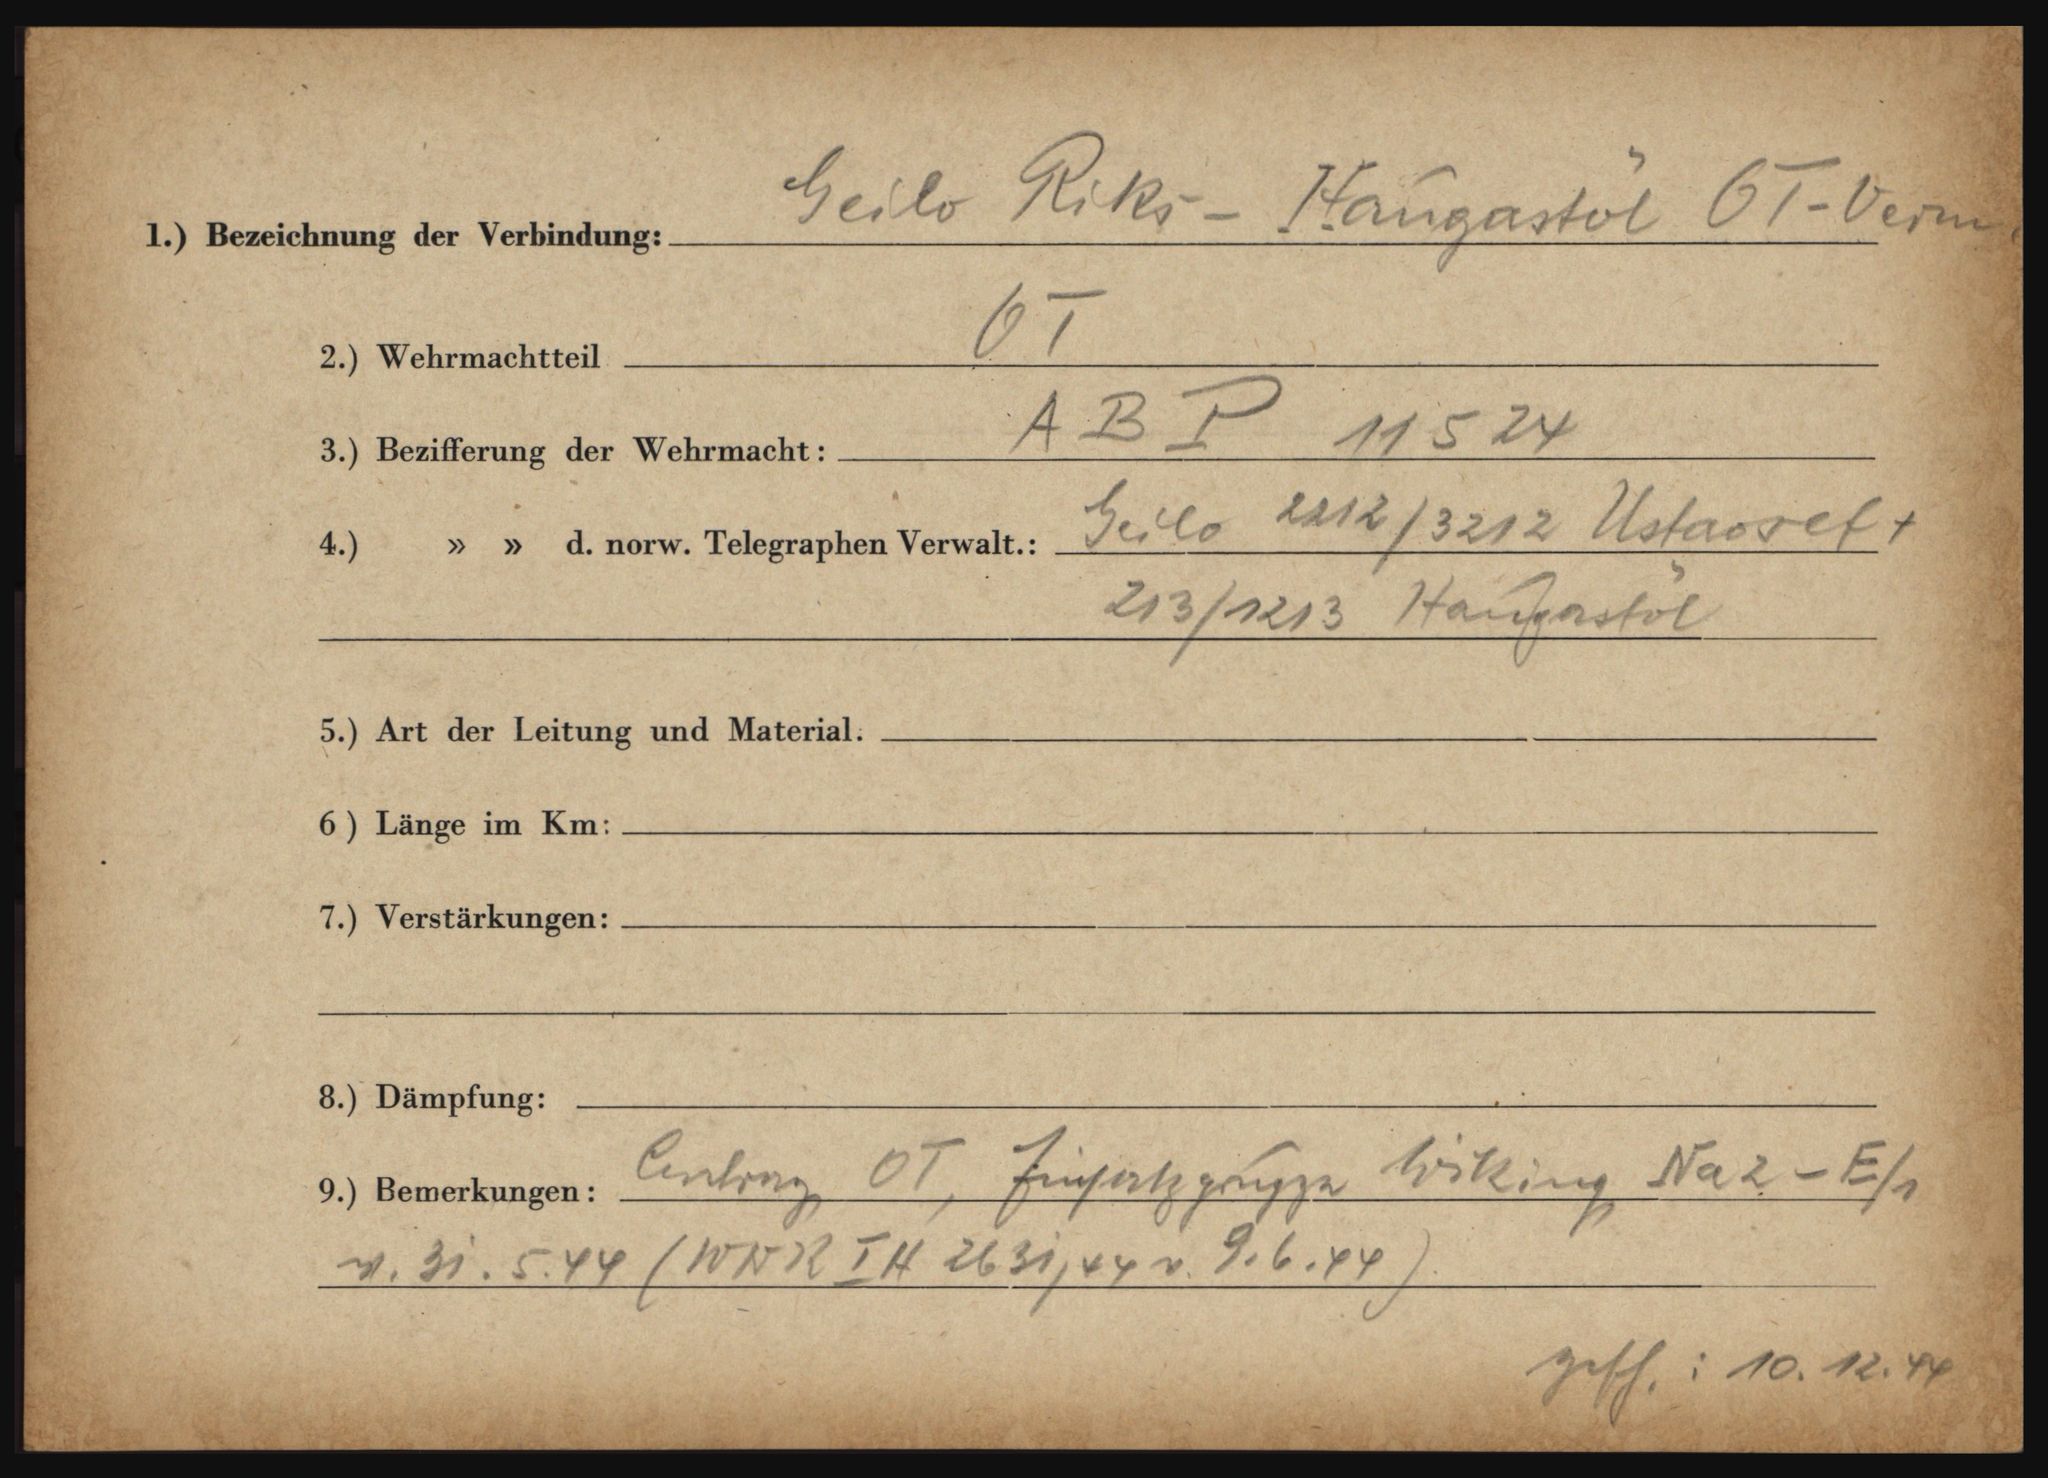 1.) Bezeichnung der Verbindung: Geilo Riks - Haugastöl OT-Verm.
2.) Wehrmachtteil OT
3.) Bezifferung der Wehrmacht: A B P 11524
4.) » » d. norw. Telegraphen Verwalt.: Geilo 2212/3212 Ustaoset +
213/1213 Haugastöl
5.) Art der Leitung und Material.
6) Länge im Km:
7.) Verstärkungen:
8.) Dämpfung:
9.) Bemerkungen: Antrag OT, Einsatzgruppe Wiking Na2 - E/1
v. 31.5.44 (WNK I H 2631/44 v. 9.6.44)
gesch.: 10.12.44